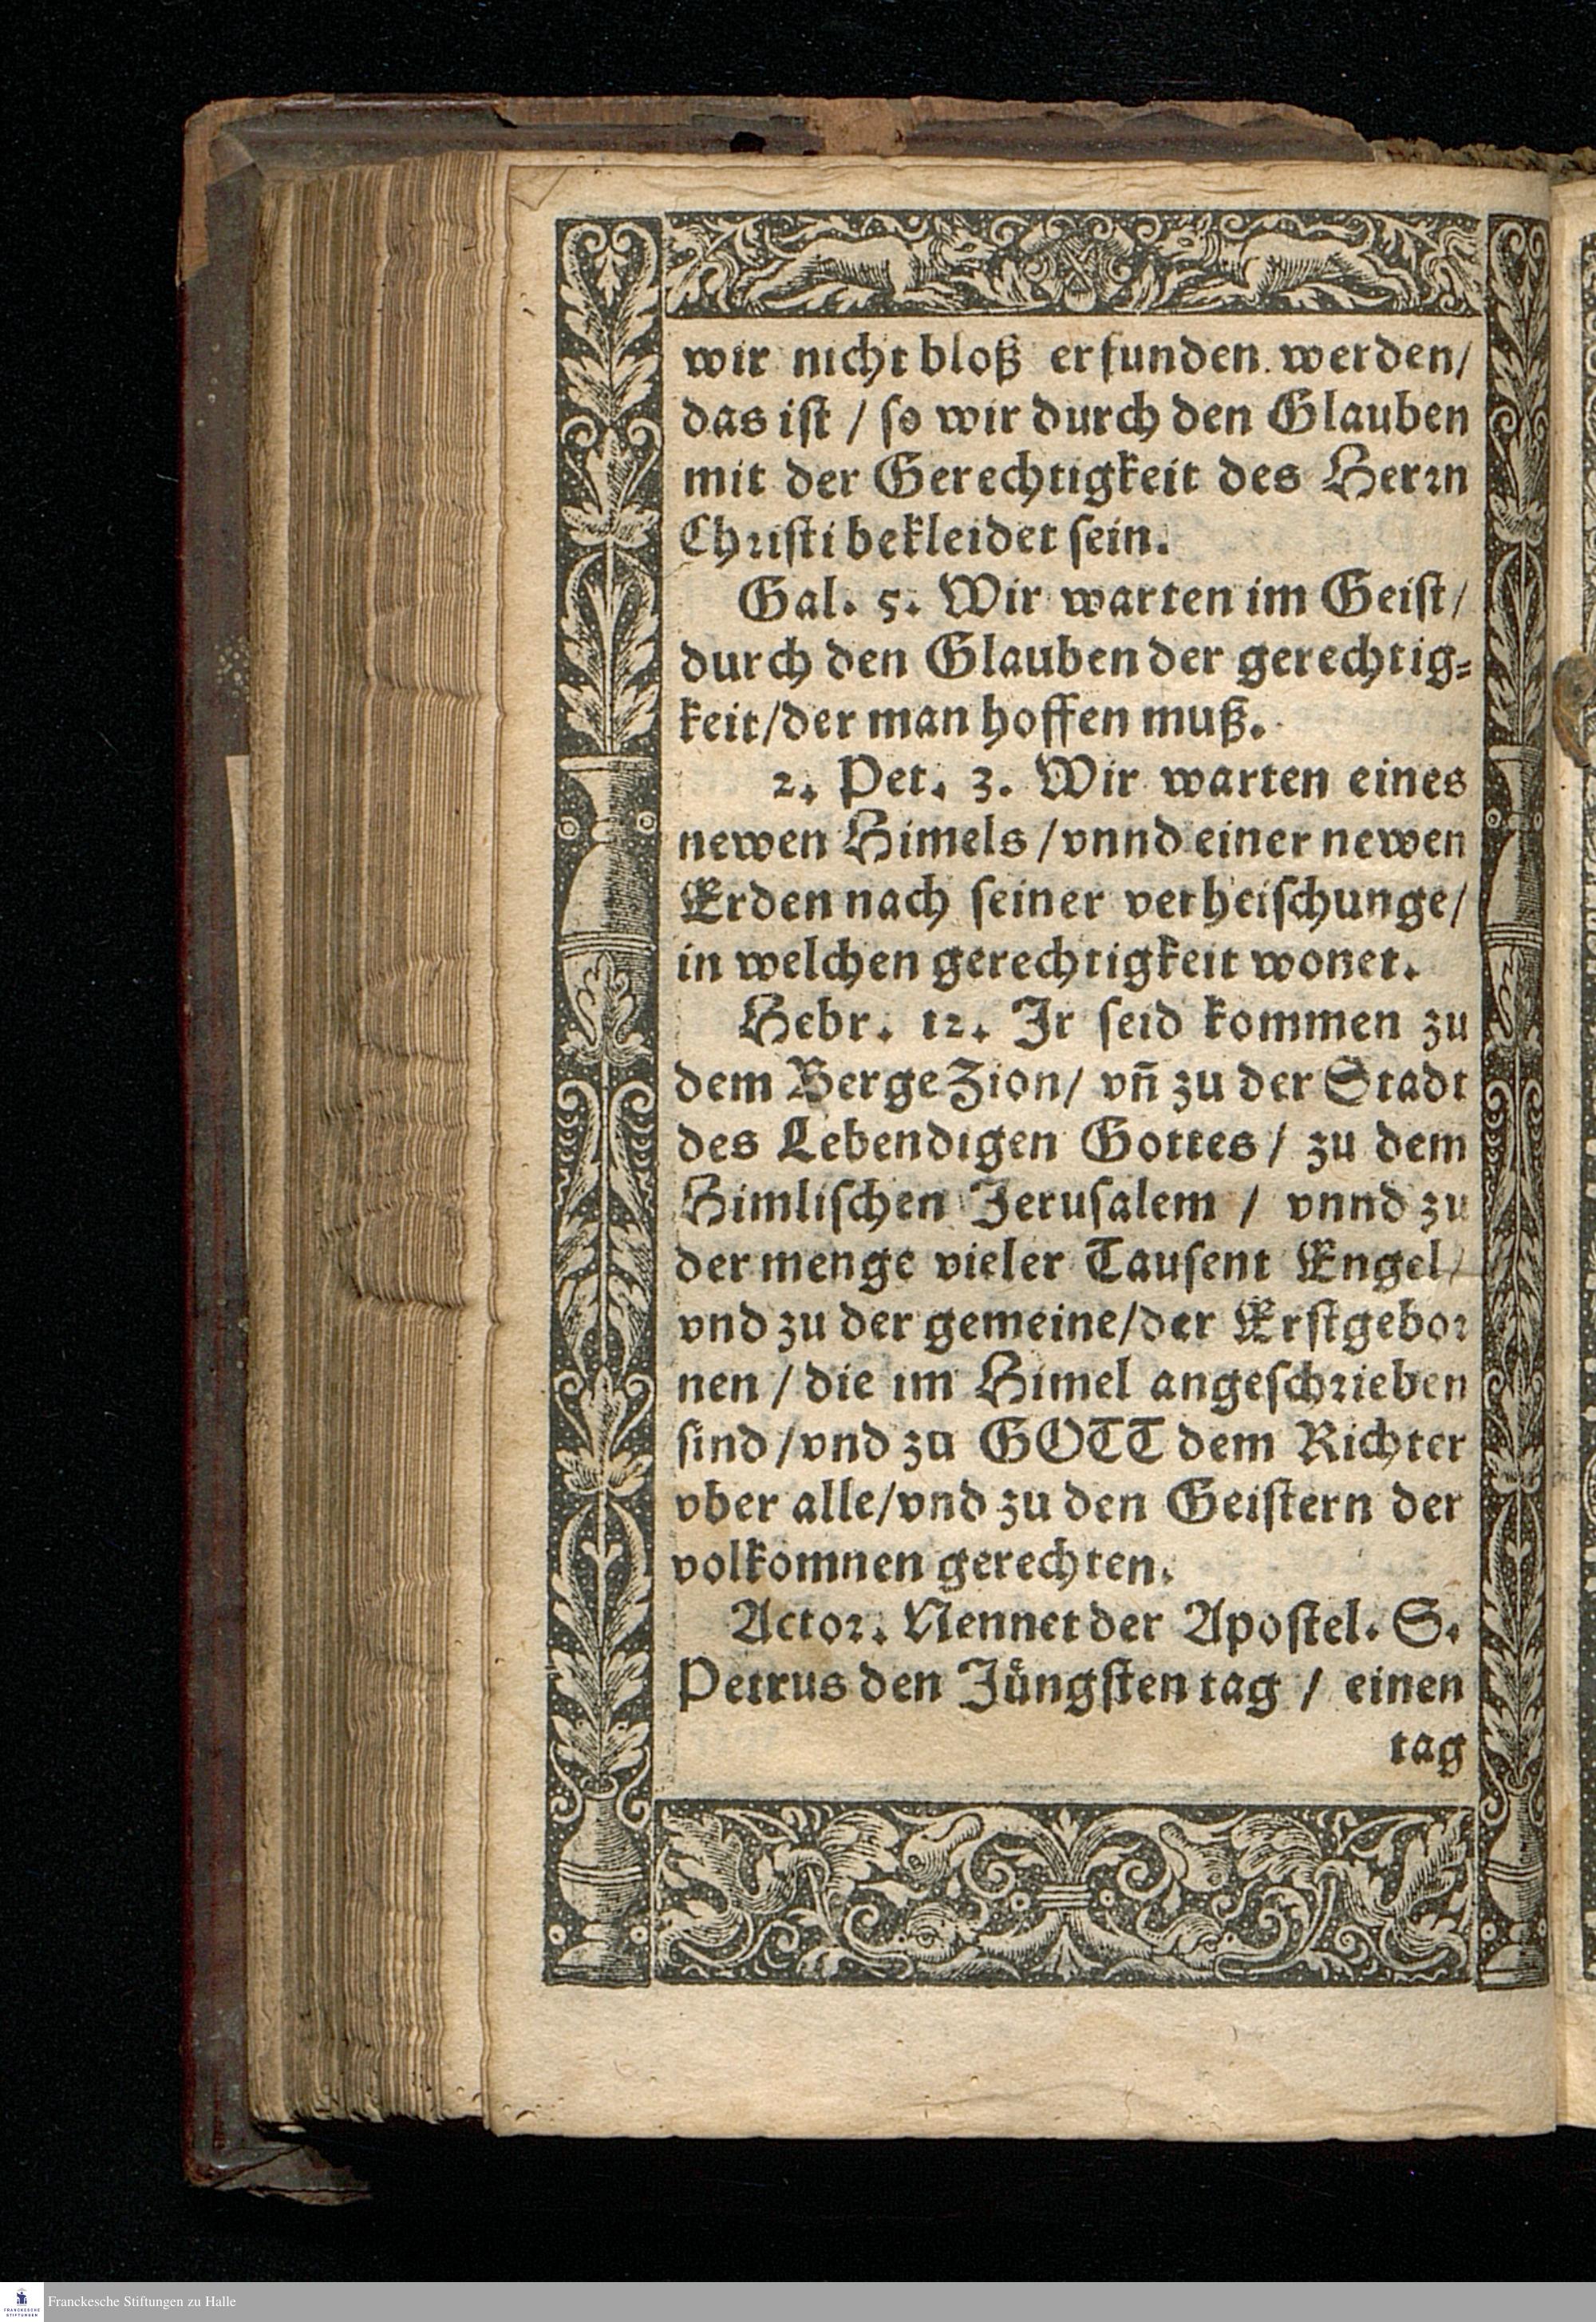 wir nicht bloß erfunden werden/
das ist / so wir durch den Glauben
mit der Gerechtigkeit des Herrn
Christi bekleidet sein.
Gal. 5. Wir warten im Geist/
durch den Glauben der gerechtig=
keit/der man hoffen muß.
2. Pet. 3. Wir warten eines
newen Himels /vnnd einer newen
Erden nach seiner verheischunge/
in welchen gerechtigkeit wonet.
Hebr. 12. Jr seid kommen zu
dem Berge Zion/ vn̄ zu der Stadt
des Lebendigen Gottes / zu dem
Himlischen Jerusalem / vnnd zu
der menge vieler Tausent Engel/
vnd zu der gemeine/der Erstgebor
nen / die im Himel angeschrieben
sind /vnd zu GOTT dem Richter
vber alle/vnd zu den Geistern der
volkomnen gerechten.
Actor. Nennet der Apostel. S.
Petrus den Jüngsten tag / einen
tag
Franckesche Stiftungen zu Halle
FRANCKESCHE
STIFTUNGEN